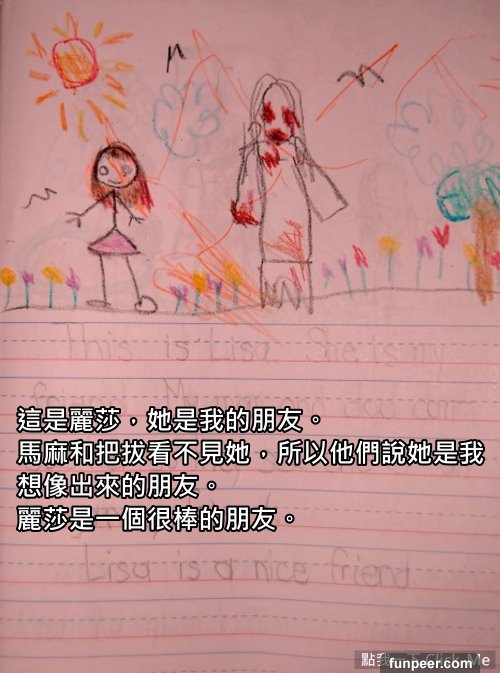 This is Lisa. She is my
dad can't
這是麗莎，她是我的朋友。
馬麻和把拔看不見她，所以他們說她是我
想像出來的朋友。
麗莎是一個很棒的朋友。
Lisa is a nice friend.
點我 Click Me
funpeer.com